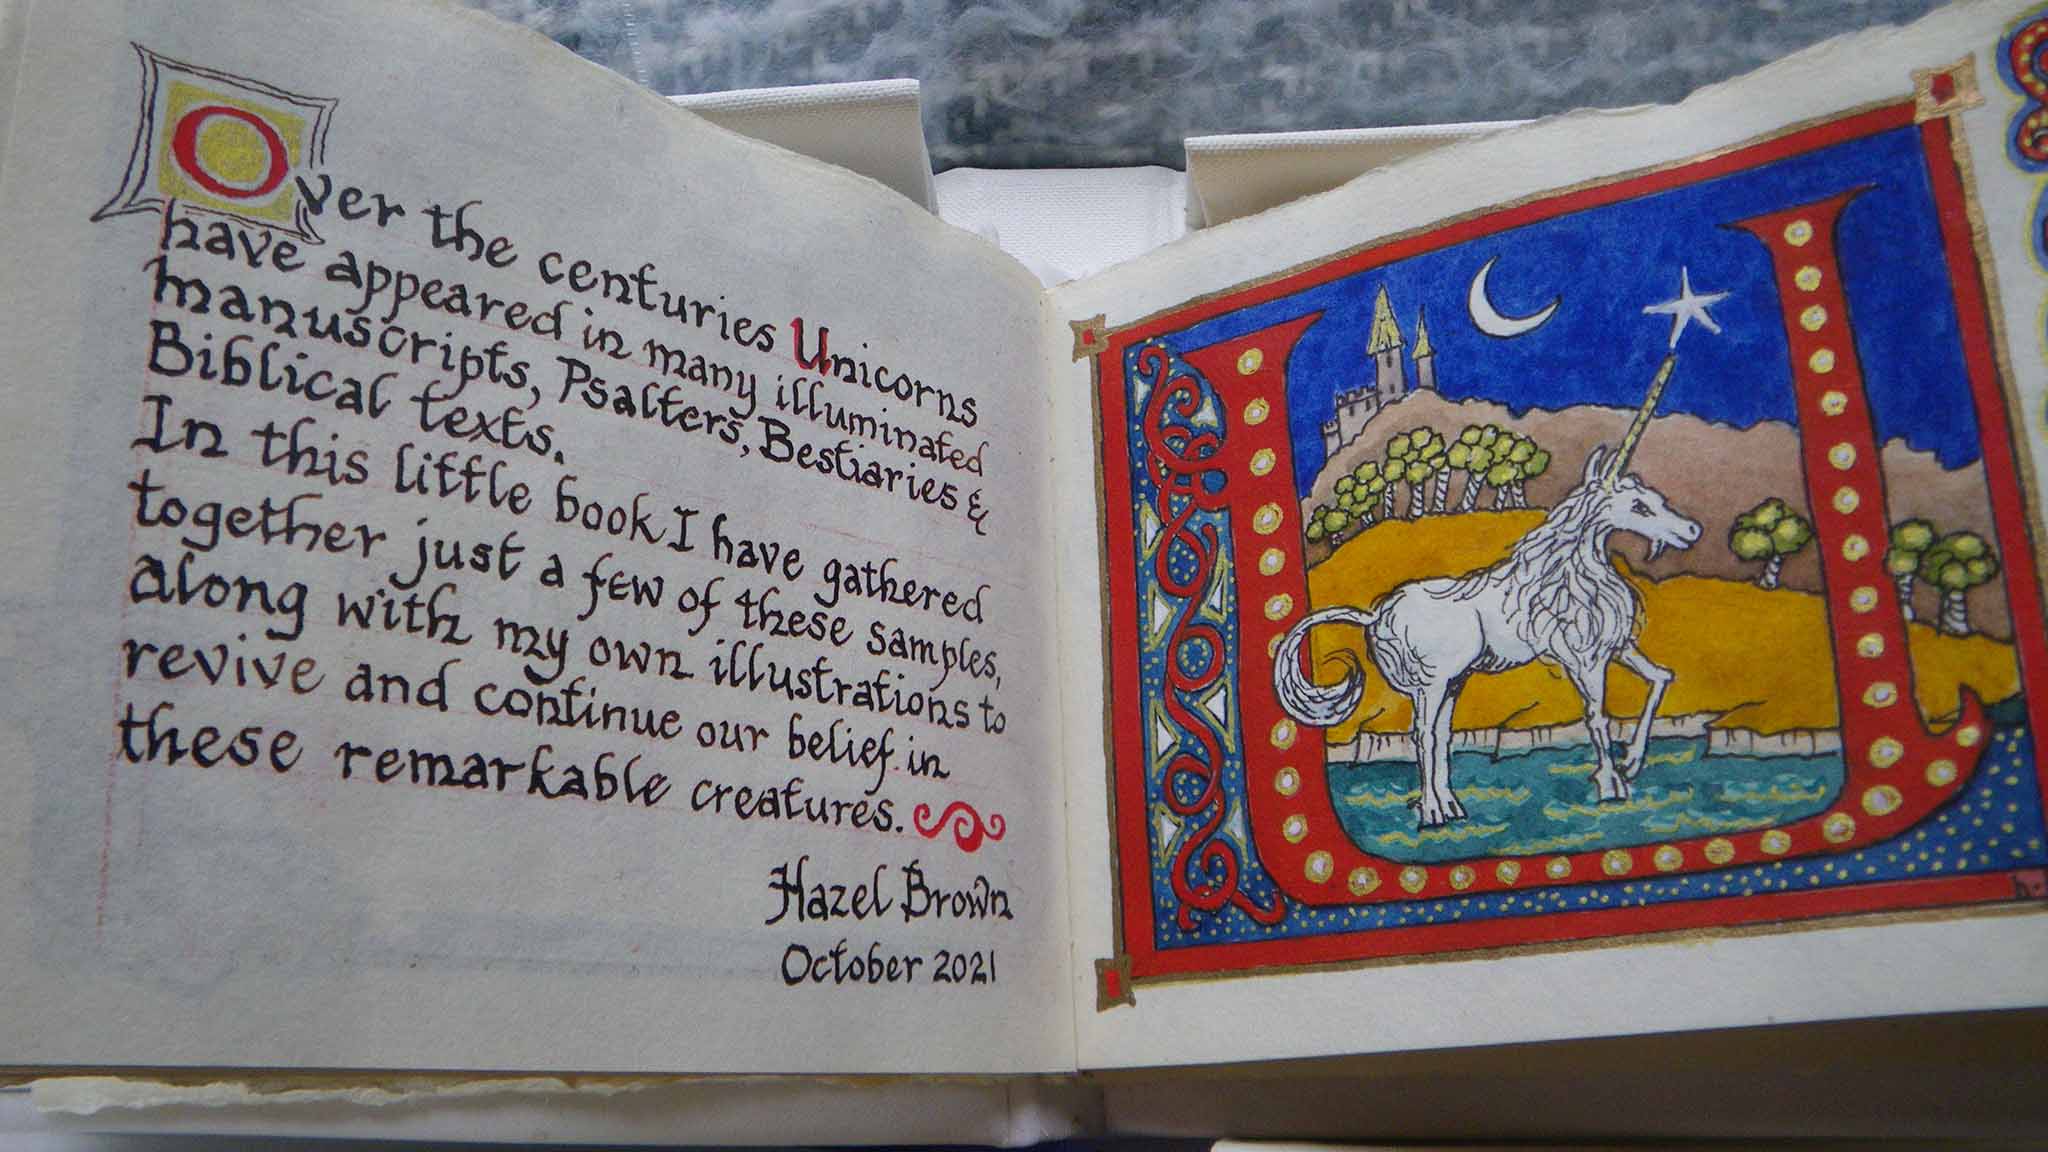 Over the centuries Unicorns
have appeared in many illuminated
manuscripts, Psalters, Bestiaries &
Biblical texts.
In this little book I have gathered
together just a few of these samples,
along with my own illustrations to
revive and continue our belief in
these remarkable creatures.
Hazel Brown
October 2021
U
h.